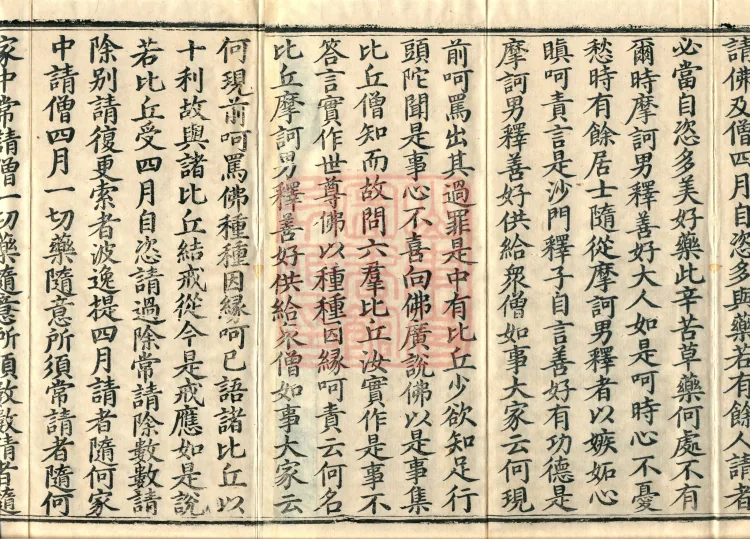 請佛及僧四月自恣多與藥若有餘人請者
必當自恣多美好藥此辛苦草藥何處不有
爾時摩訶男釋善好大人如是呵時心不憂
愁時有餘居士隨從摩訶男釋者以嫉妬心
瞋呵責言是沙門釋子自言善好有功德是
摩訶男釋善好供給衆僧如事大家云何現
前呵罵出其過罪是中有比丘少欲知足行
頭陀聞是事心不喜向佛廣說佛以是事集
比丘僧知而故問六羣比丘汝實作是事不
答言實作世尊佛以種種因緣呵責云何名
比丘摩訶男釋善好供給衆僧如事大家云
何現前呵罵佛種種因緣呵已語諸比丘以
十利故與諸比丘結戒從今是戒應如是說
若比丘受四月自恣請過除常請除數數請
除別請復更索者波逸提四月請者隨何家
中請僧四月一切藥隨意所須常請者隨何
家中常請僧一切藥隨意所須數數請者隨